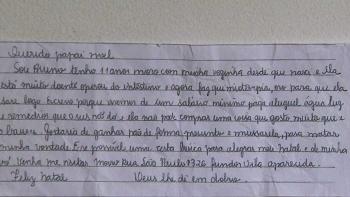 Querido papai noel
Sou Bruno tenho 11 anos moro com minha vozinha desde que nasci e ela
está muito doente operou do intestino e agora faz quimioterapia, oro para que ela
sare logo pois vivemos de um salário minimo paga aluguel água luz
e remédios que o sus não dá e ela não pode comprar uma coisa que gosto muito que é
Gostaria de ganhar pão de forma, presunto e mussarela, para matar
minha vontade. E se possível uma cesta básica para alegrar mais natal e de minha
vó Venha me visitar moro Rua São Paulo 1326 fundos Vila aparecida.
Feliz natal Deus lhe dê em dobro.